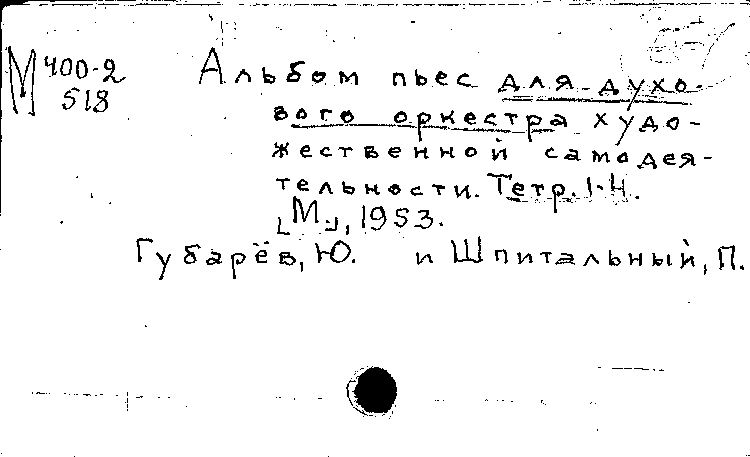 М 400-2
518
Альбом пьес для духо-
вого оркестра худо-
жественной самодея-
тельности. Тетр. 1-4.
[М.], 1953.
Губарёв, Ю. и Шпитальный, П.